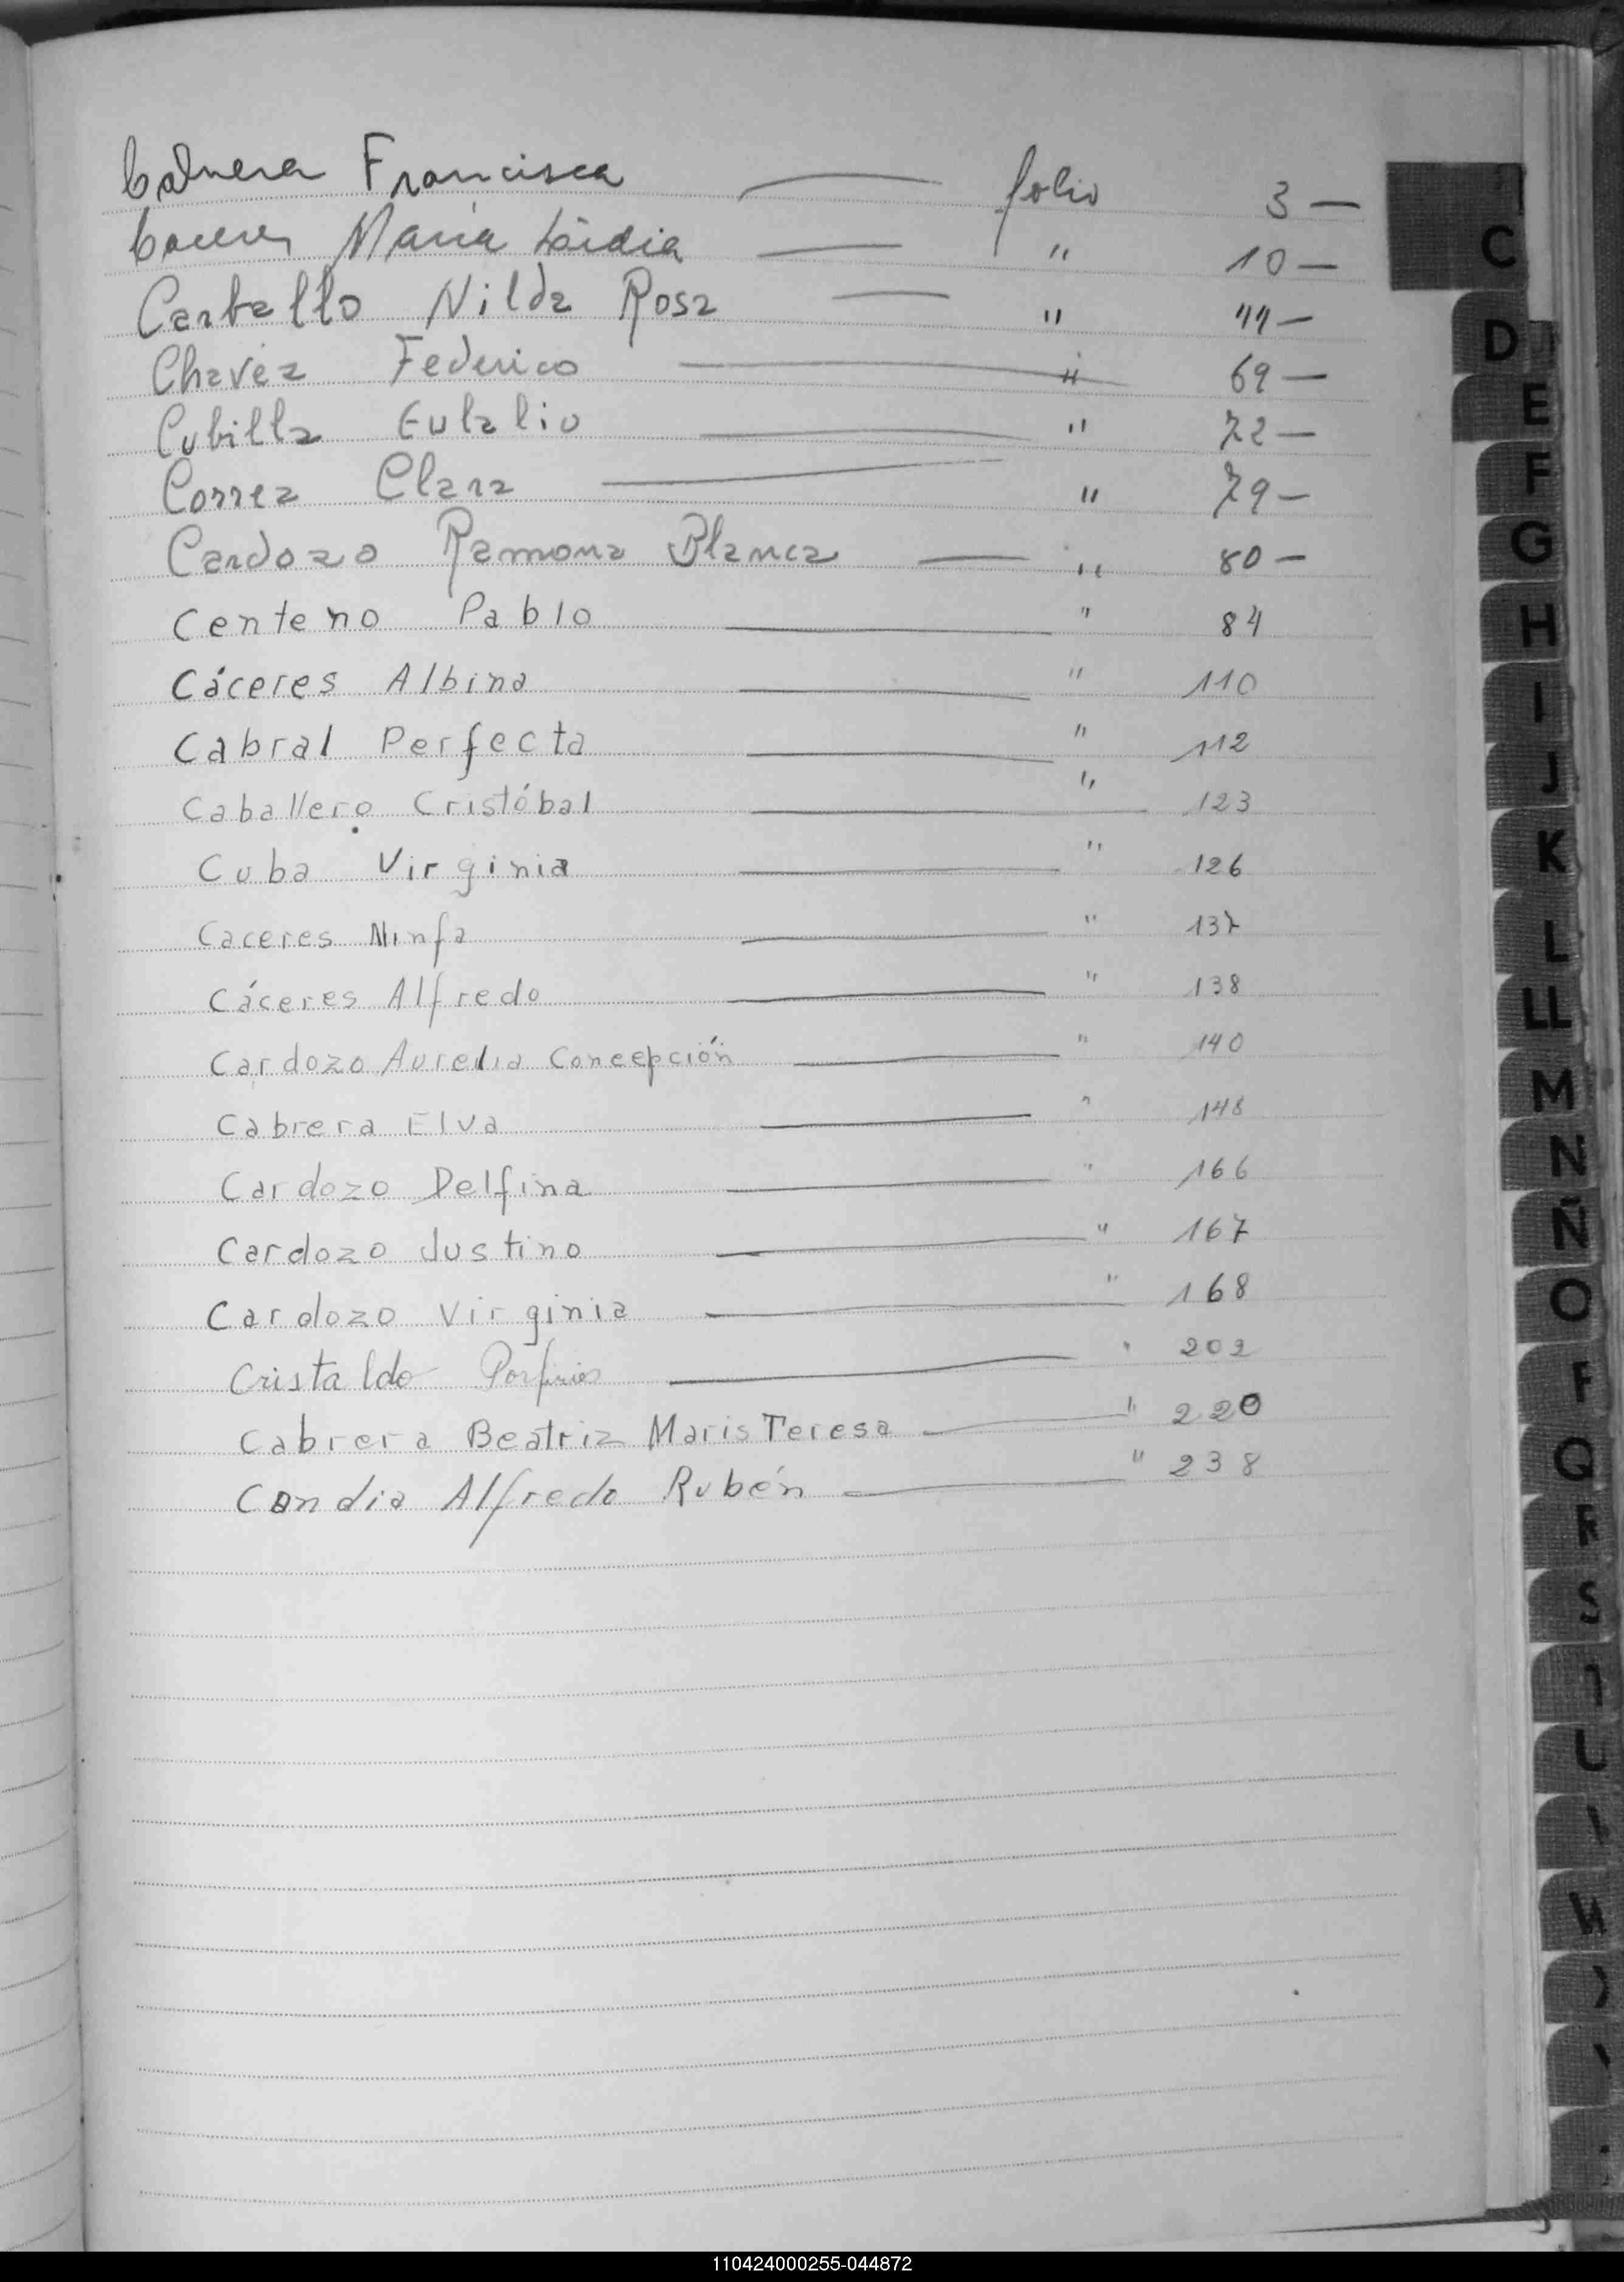 Cabrera Francisca — folio 3 —
Caceres María — " 10 —
Carballo Nilda Rosa — " 44 —
Chavez Federico — " 69 —
Cubilla Eulalio — " 72 —
Correa Clara — " 79 —
Cardozo Ramona Blanca — " 80 —
Centeno Pablo — " 84
Cáceres Albina — " 110
Cabral Perfecta — " 112
Caballero Cristóbal — " 123
Cuba Virginia — " 126
Caceres Ninfa — " 137
Cáceres Alfredo — " 138
Cardozo Aurelia Concepción — " 140
Cabrera Elva — " 148
Cardozo Delfina — " 166
Cardozo Justino — " 167
Cardozo Virginia — " 168
Cristaldo Porfirio — " 202
Cabrera Beatriz Maris Teresa — " 220
Candia Alfredo Rubén — " 238
C
D
E
F
G
H
I
J
K
L
LL
M
N
Ñ
O
P
Q
R
S
110424000255-044872